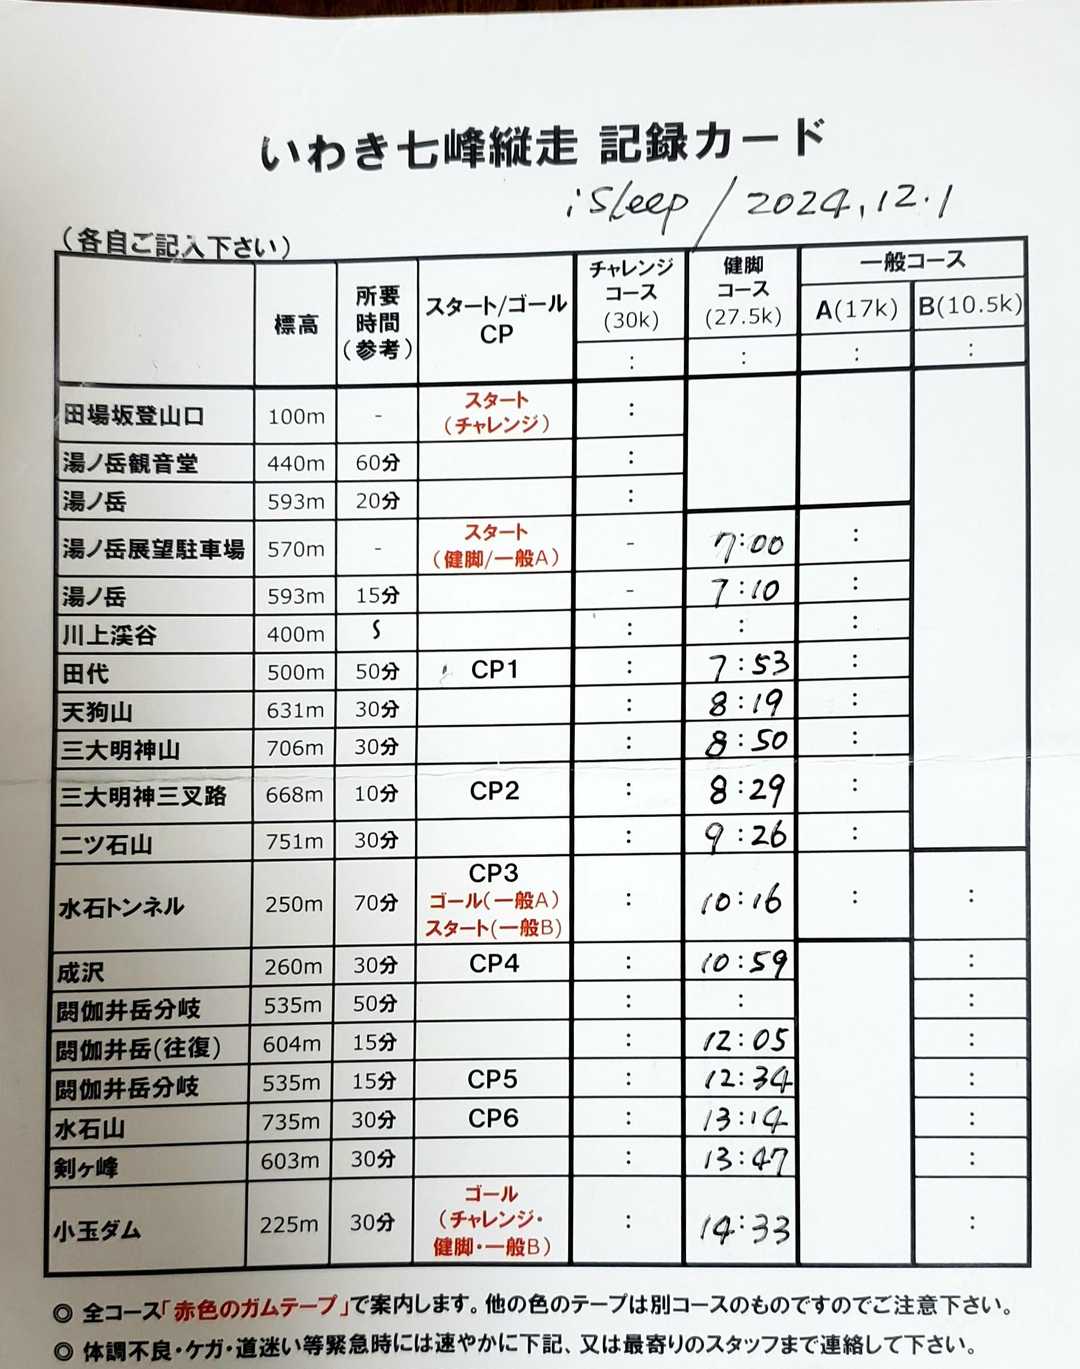 いわき七峰縦走 記録カード
iSleep / 2024.12.1
(各自ご記入下さい)
標高 所要時間(参考) スタート/ゴール CP チャレンジコース(30k) 健脚コース(27.5k) 一般コース
A(17k) B(10.5k)
: : : :
田場坂登山口 100m - スタート(チャレンジ) :
湯ノ岳観音堂 440m 60分 :
湯ノ岳 593m 20分 :
湯ノ岳展望駐車場 570m - スタート(健脚/一般A) - 7:00 :
湯ノ岳 593m 15分 - 7:10 :
川上渓谷 400m 〜 : : :
田代 500m 50分 CP1 : 7:53 :
天狗山 631m 30分 : 8:19 :
三大明神山 706m 30分 : 8:50 :
三大明神三叉路 668m 10分 CP2 : 8:29 :
二ツ石山 751m 30分 : 9:26 :
水石トンネル 250m 70分 CP3 ゴール(一般A) スタート(一般B) : 10:16 : :
成沢 260m 30分 CP4 : 10:59 :
閼伽井岳分岐 535m 50分 : : :
閼伽井岳(往復) 604m 15分 : 12:05 :
閼伽井岳分岐 535m 15分 CP5 : 12:34 :
水石山 735m 30分 CP6 : 13:14 :
剣ヶ峰 603m 30分 : 13:47 :
小玉ダム 225m 30分 ゴール(チャレンジ・健脚・一般B) : 14:33 :
◎ 全コース「赤色のガムテープ」で案内します。他の色のテープは別コースのものですのでご注意下さい。
◎ 体調不良・ケガ・道迷い等緊急時には速やかに下記、又は最寄りのスタッフまで連絡して下さい。